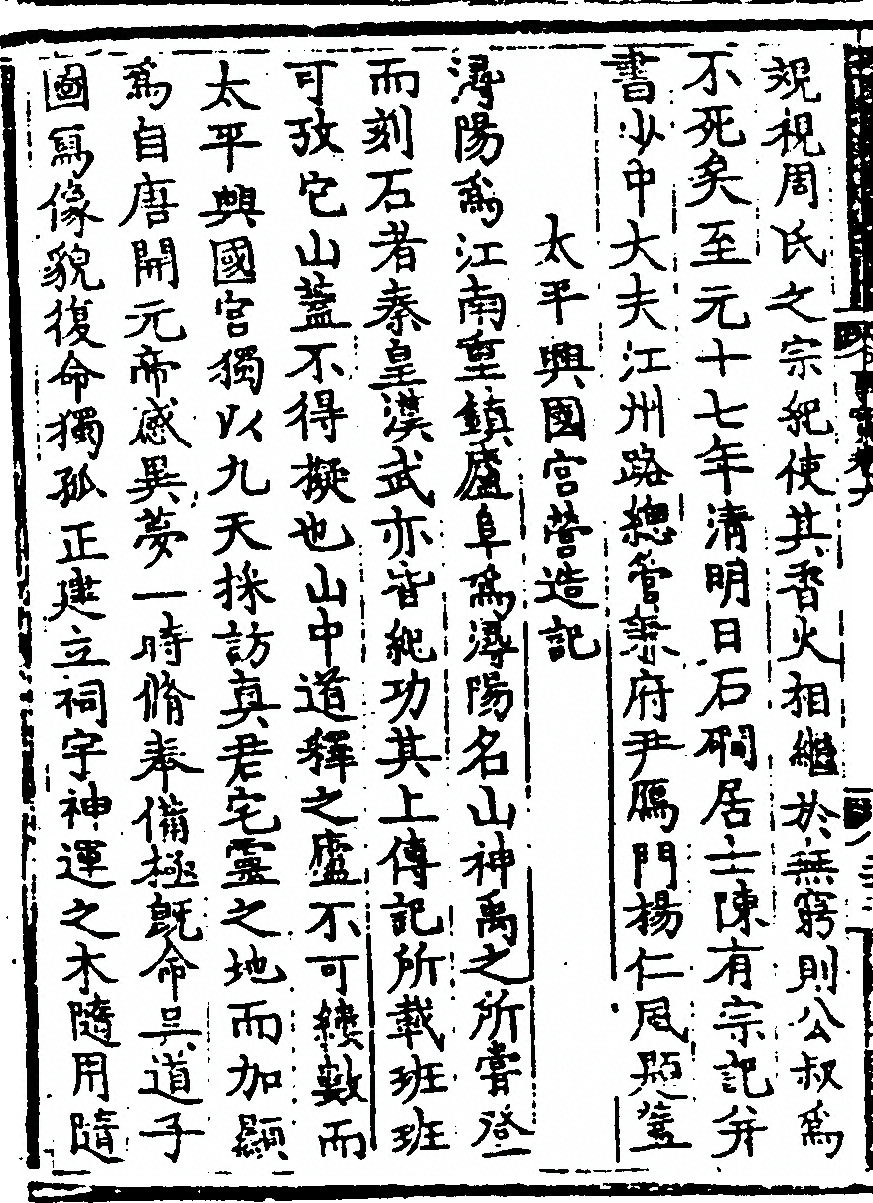 覡視周氏之宗紀使其香火相繼於無窮則公叔爲
不死矣至元十七年清明日石礀居士陳有宗記并
書少中大夫江州路總管兼府尹鴈門楊仁風題蓋
太平興國宮營造記
潯陽爲江南重鎮廬阜爲潯陽名山神禹之所嘗登
而刻石者秦皇漢武亦皆紀功其上傳記所載班班
可攷它山蓋不得擬也山中道釋之廬不可縷數而
太平興國宮獨以九天採訪真君宅靈之地而加顯
爲自唐開元帝感異夢一時脩奉備極旣命吳道子
圖寫像貌復命獨孤正建立祠宇神運之木隨用隨